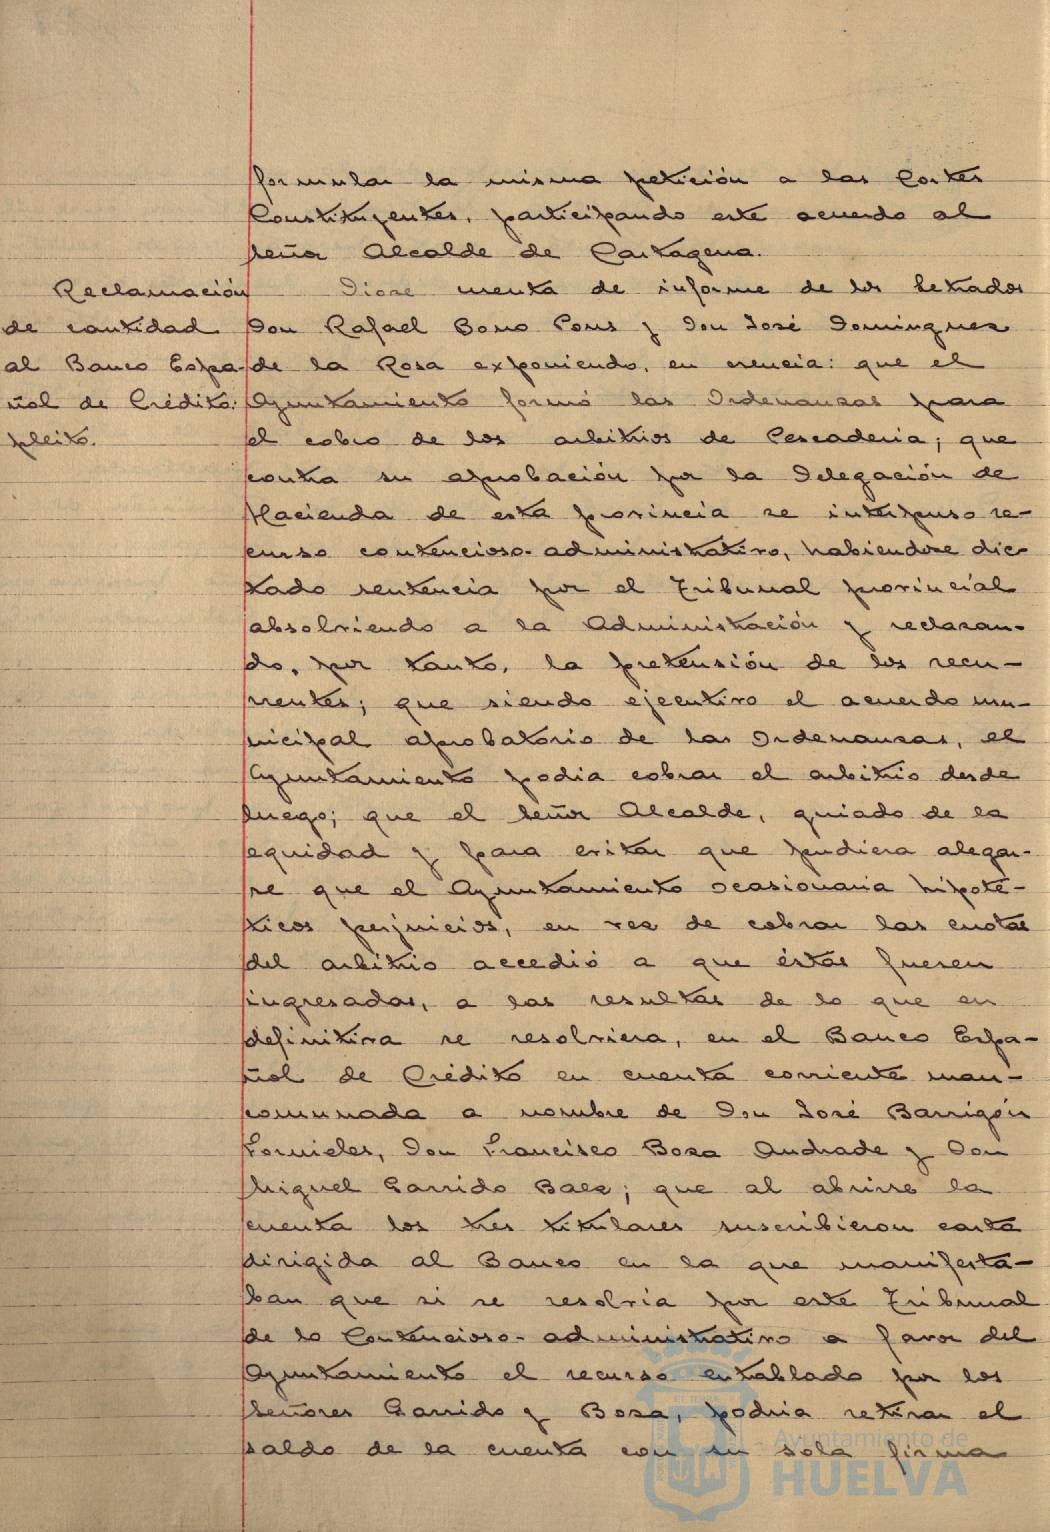 formular la misma petición a las Cortes
Constituyentes, participando este acuerdo al
señor Alcalde de Cartagena.
Reclamación
de cantidad
al Banco Espa-
ñol de Crédito.
pleito.
Diose cuenta de informe de los letrados
Don Rafael Bono Pons y Don José Domínguez
de la Rosa exponiendo, en esencia: que el
Ayuntamiento formó las Ordenanzas para
el cobro de los arbitrios de Pescadería; que
contra su aprobación por la Delegación de
Hacienda de esta provincia se interpuso re-
curso contencioso-administrativo, habiendose dic-
tado sentencia por el Tribunal provincial
absolviendo a la Administración y rechazan-
do, por tanto, la pretensión de los recu-
rrentes; que siendo ejecutivo el acuerdo mu-
nicipal aprobatorio de las Ordenanzas, el
Ayuntamiento podia cobrar el arbitrio desde
luego; que el señor Alcalde, guiado de la
equidad y para evitar que pudiera alegar-
se que el Ayuntamiento ocasionaria hipoté-
ticos perjuicios, en vez de cobrar las cuotas
del arbitrio accedió a que éstas fuesen
ingresadas, a las resultas de lo que en
definitiva se resolviera, en el Banco Espa-
ñol de Crédito en cuenta corriente man-
comunada a nombre de Don José Barrigón
Fornieles, Don Francisco Boza Andrade y Don
Miguel Garrido Baez; que al abrirse la
cuenta los tres titulares suscribieron carta
dirigida al Banco en la que manifesta-
ban que si se resolvia por este Tribunal
de lo Contencioso-administrativo a favor del
Ayuntamiento el recurso entablado por los
señores Garrido y Boza, podria retirar el
saldo de la cuenta con su sola firma
Ayuntamiento de
HUELVA